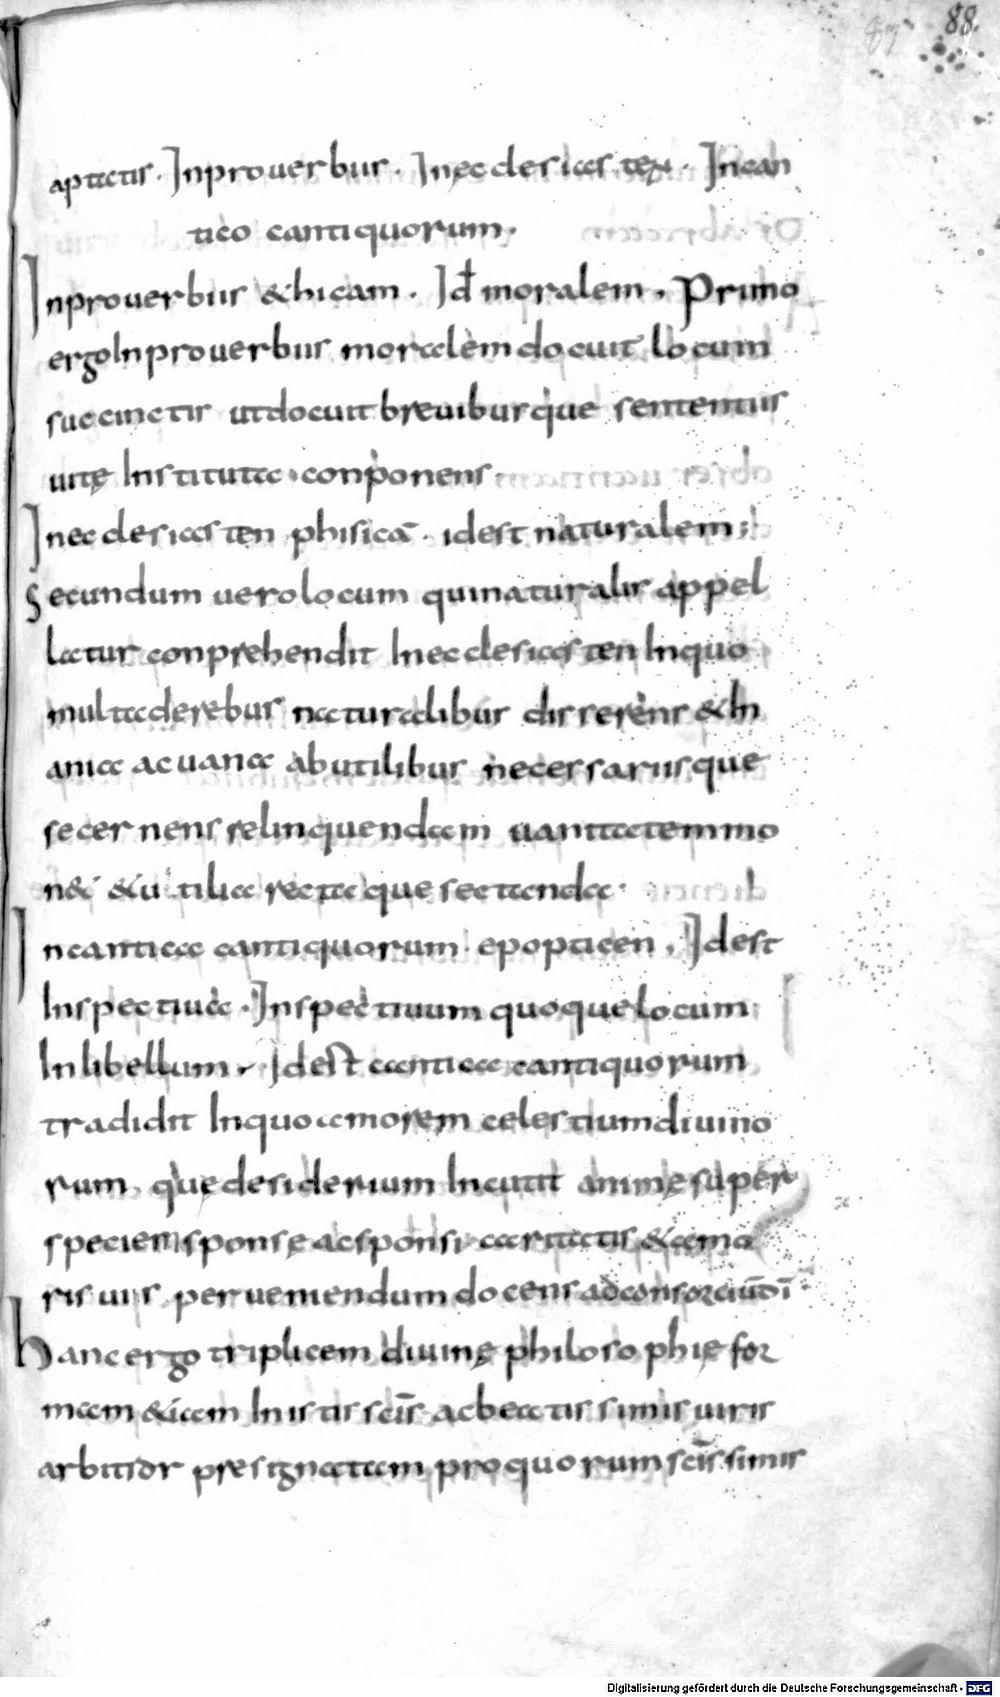 87 88
aptatis. Inproverbiis. Inecclesiastes. Incan
tico canticquorum.
Inproverbiis &hicam. Id moralem. Primo
ergo Inproverbiis moralem docuit locum
succinctis utdocuit brevibusque sententiis
vitę Instituta conponens.
Inecclesiasten phisicā. idest naturalem;
Secundum vero locum quinaturalis appel
latur conprehendit Inecclesiasten Inquo
multa derebus naturalibus disserens &In
ania ac vana ab utilibus necessariisque
secernens relinquendam vanitatem mo
n& &utilia recta que sectanda.
Incantica cantiquorum epopticen. Idest
Inspectiva. Inspectivum quoque locum
Inlibellum. Idest cantica cantiquorum
tradidit Inquo amorem celestium divino
rum quę desiderium Incutit animę super
speciem sponsę acsponsi caritatis &amo
ris viis perveniendum docens adconsorciū dī.
hanc ergo triplicem divinę philosophię for
mam &iam Inistis scīs acbeatissimis viris
arbitror presignatam proquorum scīssimis
Digitalisierung gefördert durch die Deutsche Forschungsgemeinschaft - DFG